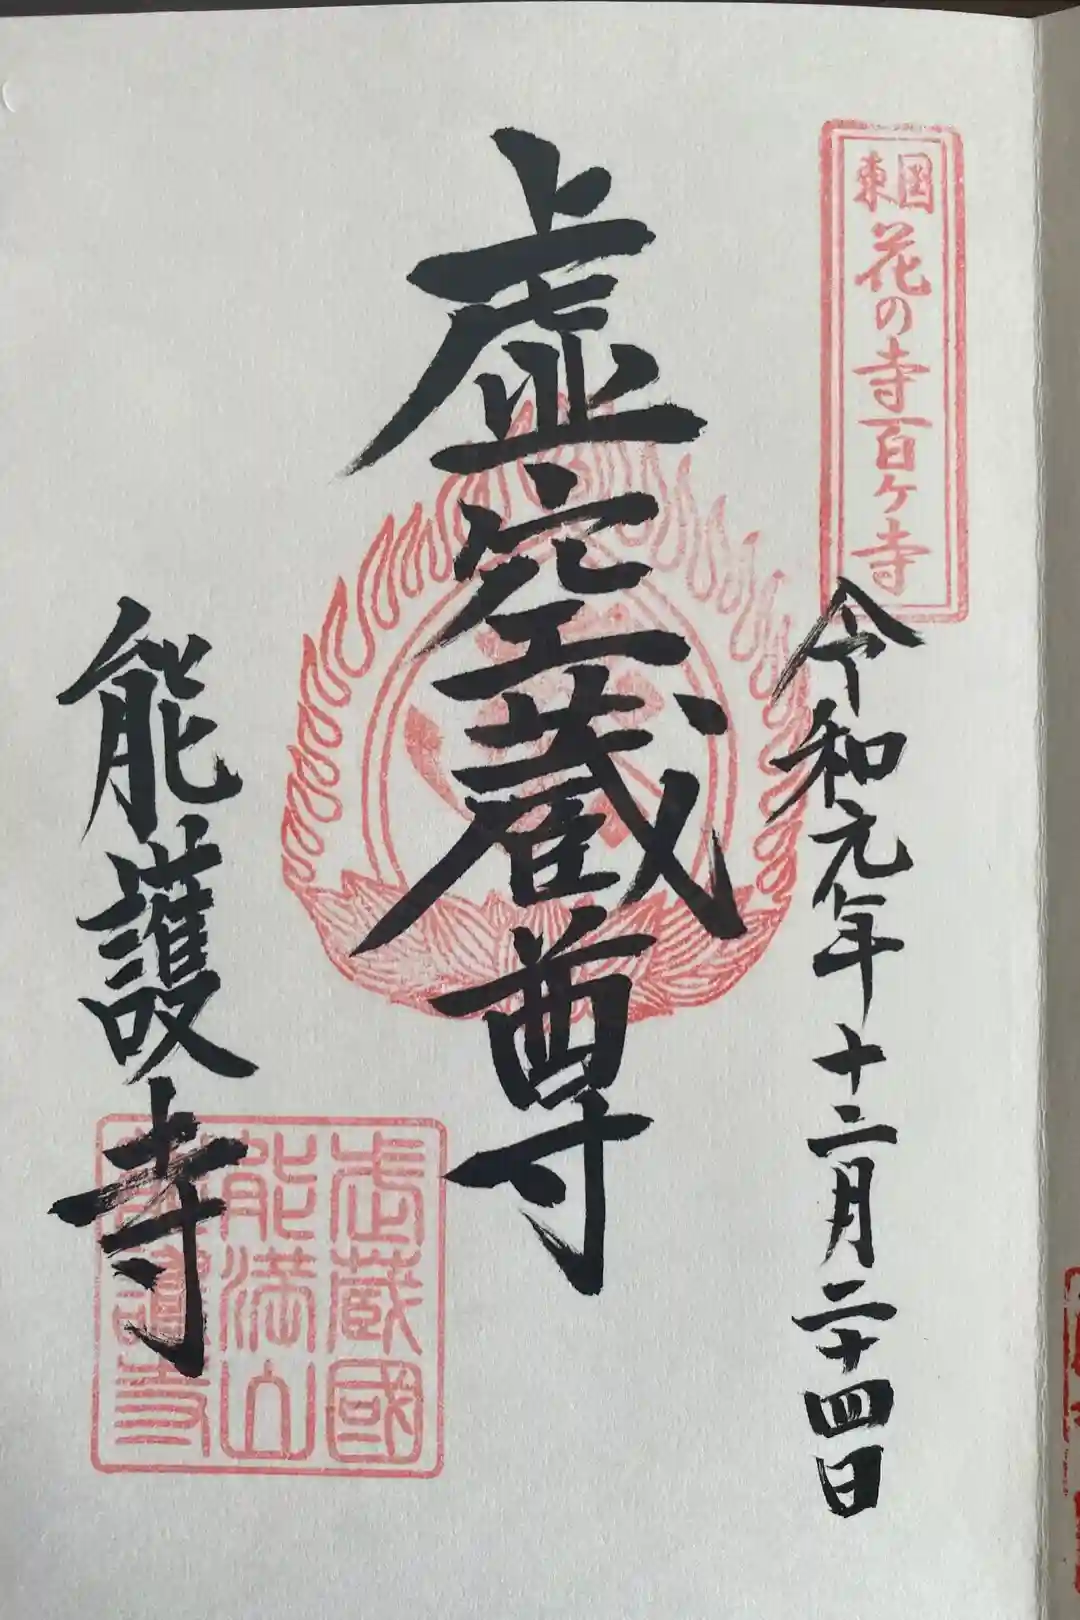 東国花の寺百ヶ寺
令和元年十二月二十四日
虚空蔵尊
能護寺
武蔵國
能満山
能護寺